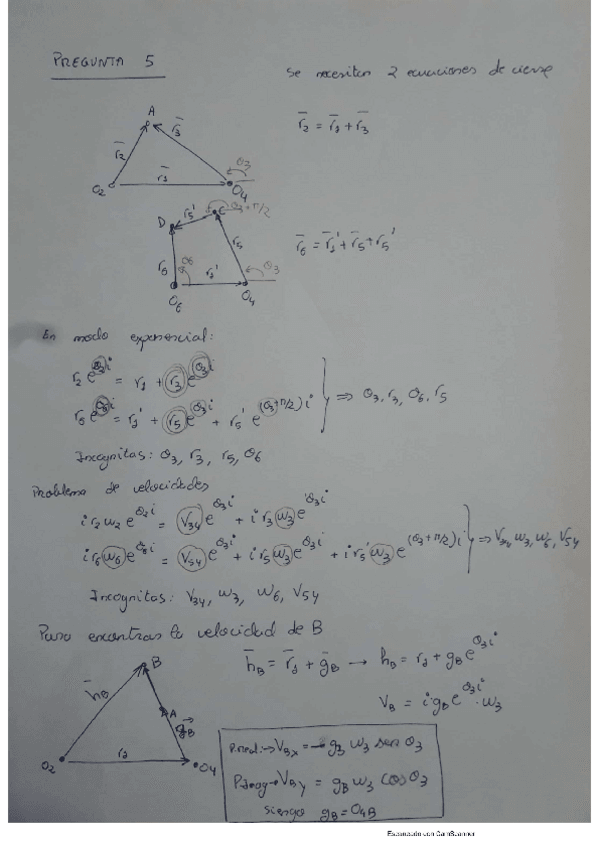 PREGUNTA 5
Se necesitan 2 ecuaciones de cierre
A
r̄2 = r̄1 + r̄3
r̄2 r̄3
r̄1 θ3
O2 O4
D r5' C θ3+π/2
r̄6 = r̄1' + r̄5 + r̄5'
r6 θ6 r1' r5 θ3
O6 O4
En modo exponencial:
r2 e^θ2i = r1 + r3 e^θ3i
r6 e^θ6i = r1' + r5 e^θ3i + r5' e^(θ3+π/2)i
⇒ θ3, r3, θ6, r5
Incognitas: θ3, r3, r5, θ6
Problema de velocidades
i r2 ω2 e^θ2i = V34 e^θ3i + i r3 ω3 e^θ3i
i r6 ω6 e^θ6i = V54 e^θ3i + i r5 ω3 e^θ3i + i r5' ω3 e^(θ3+π/2)i
⇒ V34, ω3, ω6, V54
Incognitas: V34, ω3, ω6, V54
Para encontrar la velocidad de B
h̄B = r̄1 + ḡB → hB = r1 + gB e^θ3i
VB = i gB e^θ3i · ω3
B
h̄B A
gB
r1
O2 O4
VBx = - gB ω3 sen θ3
VBy = gB ω3 cos θ3
siendo gB = O4B
Escaneado con CamScanner